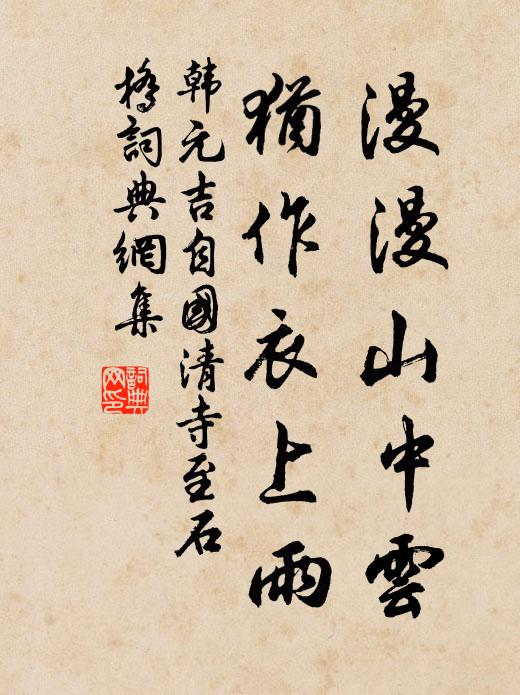 漫漫山中雲
猶作衣上雨
韩元吉自國清寺至石
橋詞典網集
詞典
网印